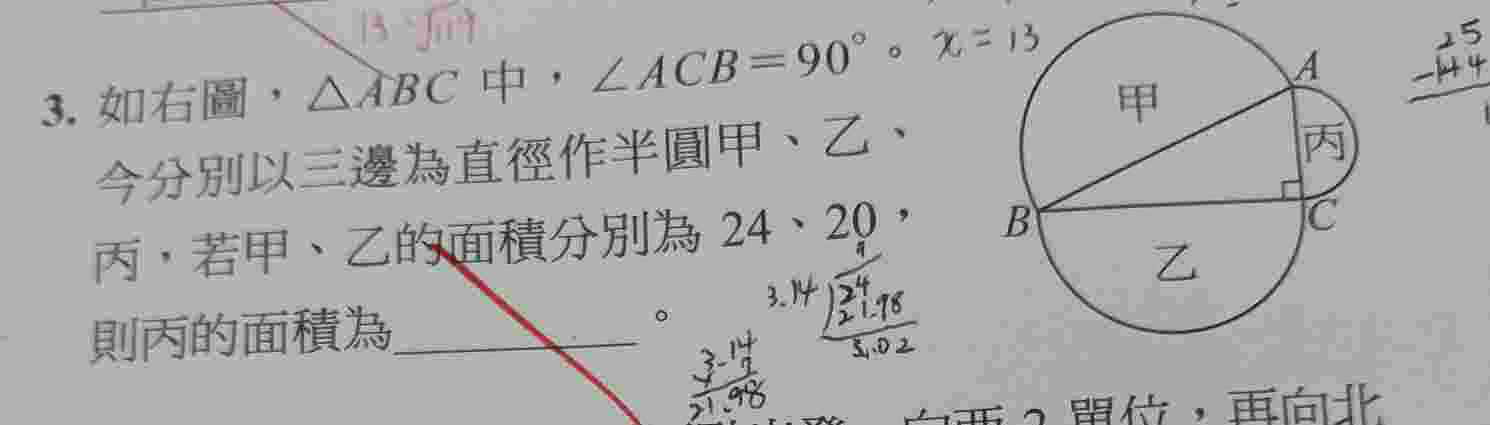 13 √119
3. 如右圖，△ABC 中，∠ACB＝90°。 x = 13
今分別以三邊為直徑作半圓甲、乙、
丙，若甲、乙的面積分別為 24、20，
則丙的面積為＿＿＿＿＿。
A
甲
丙
B
C
乙
25
-144
1
3.14
24
21.98
3.14
7
21.98
向西 2 單位，再向北